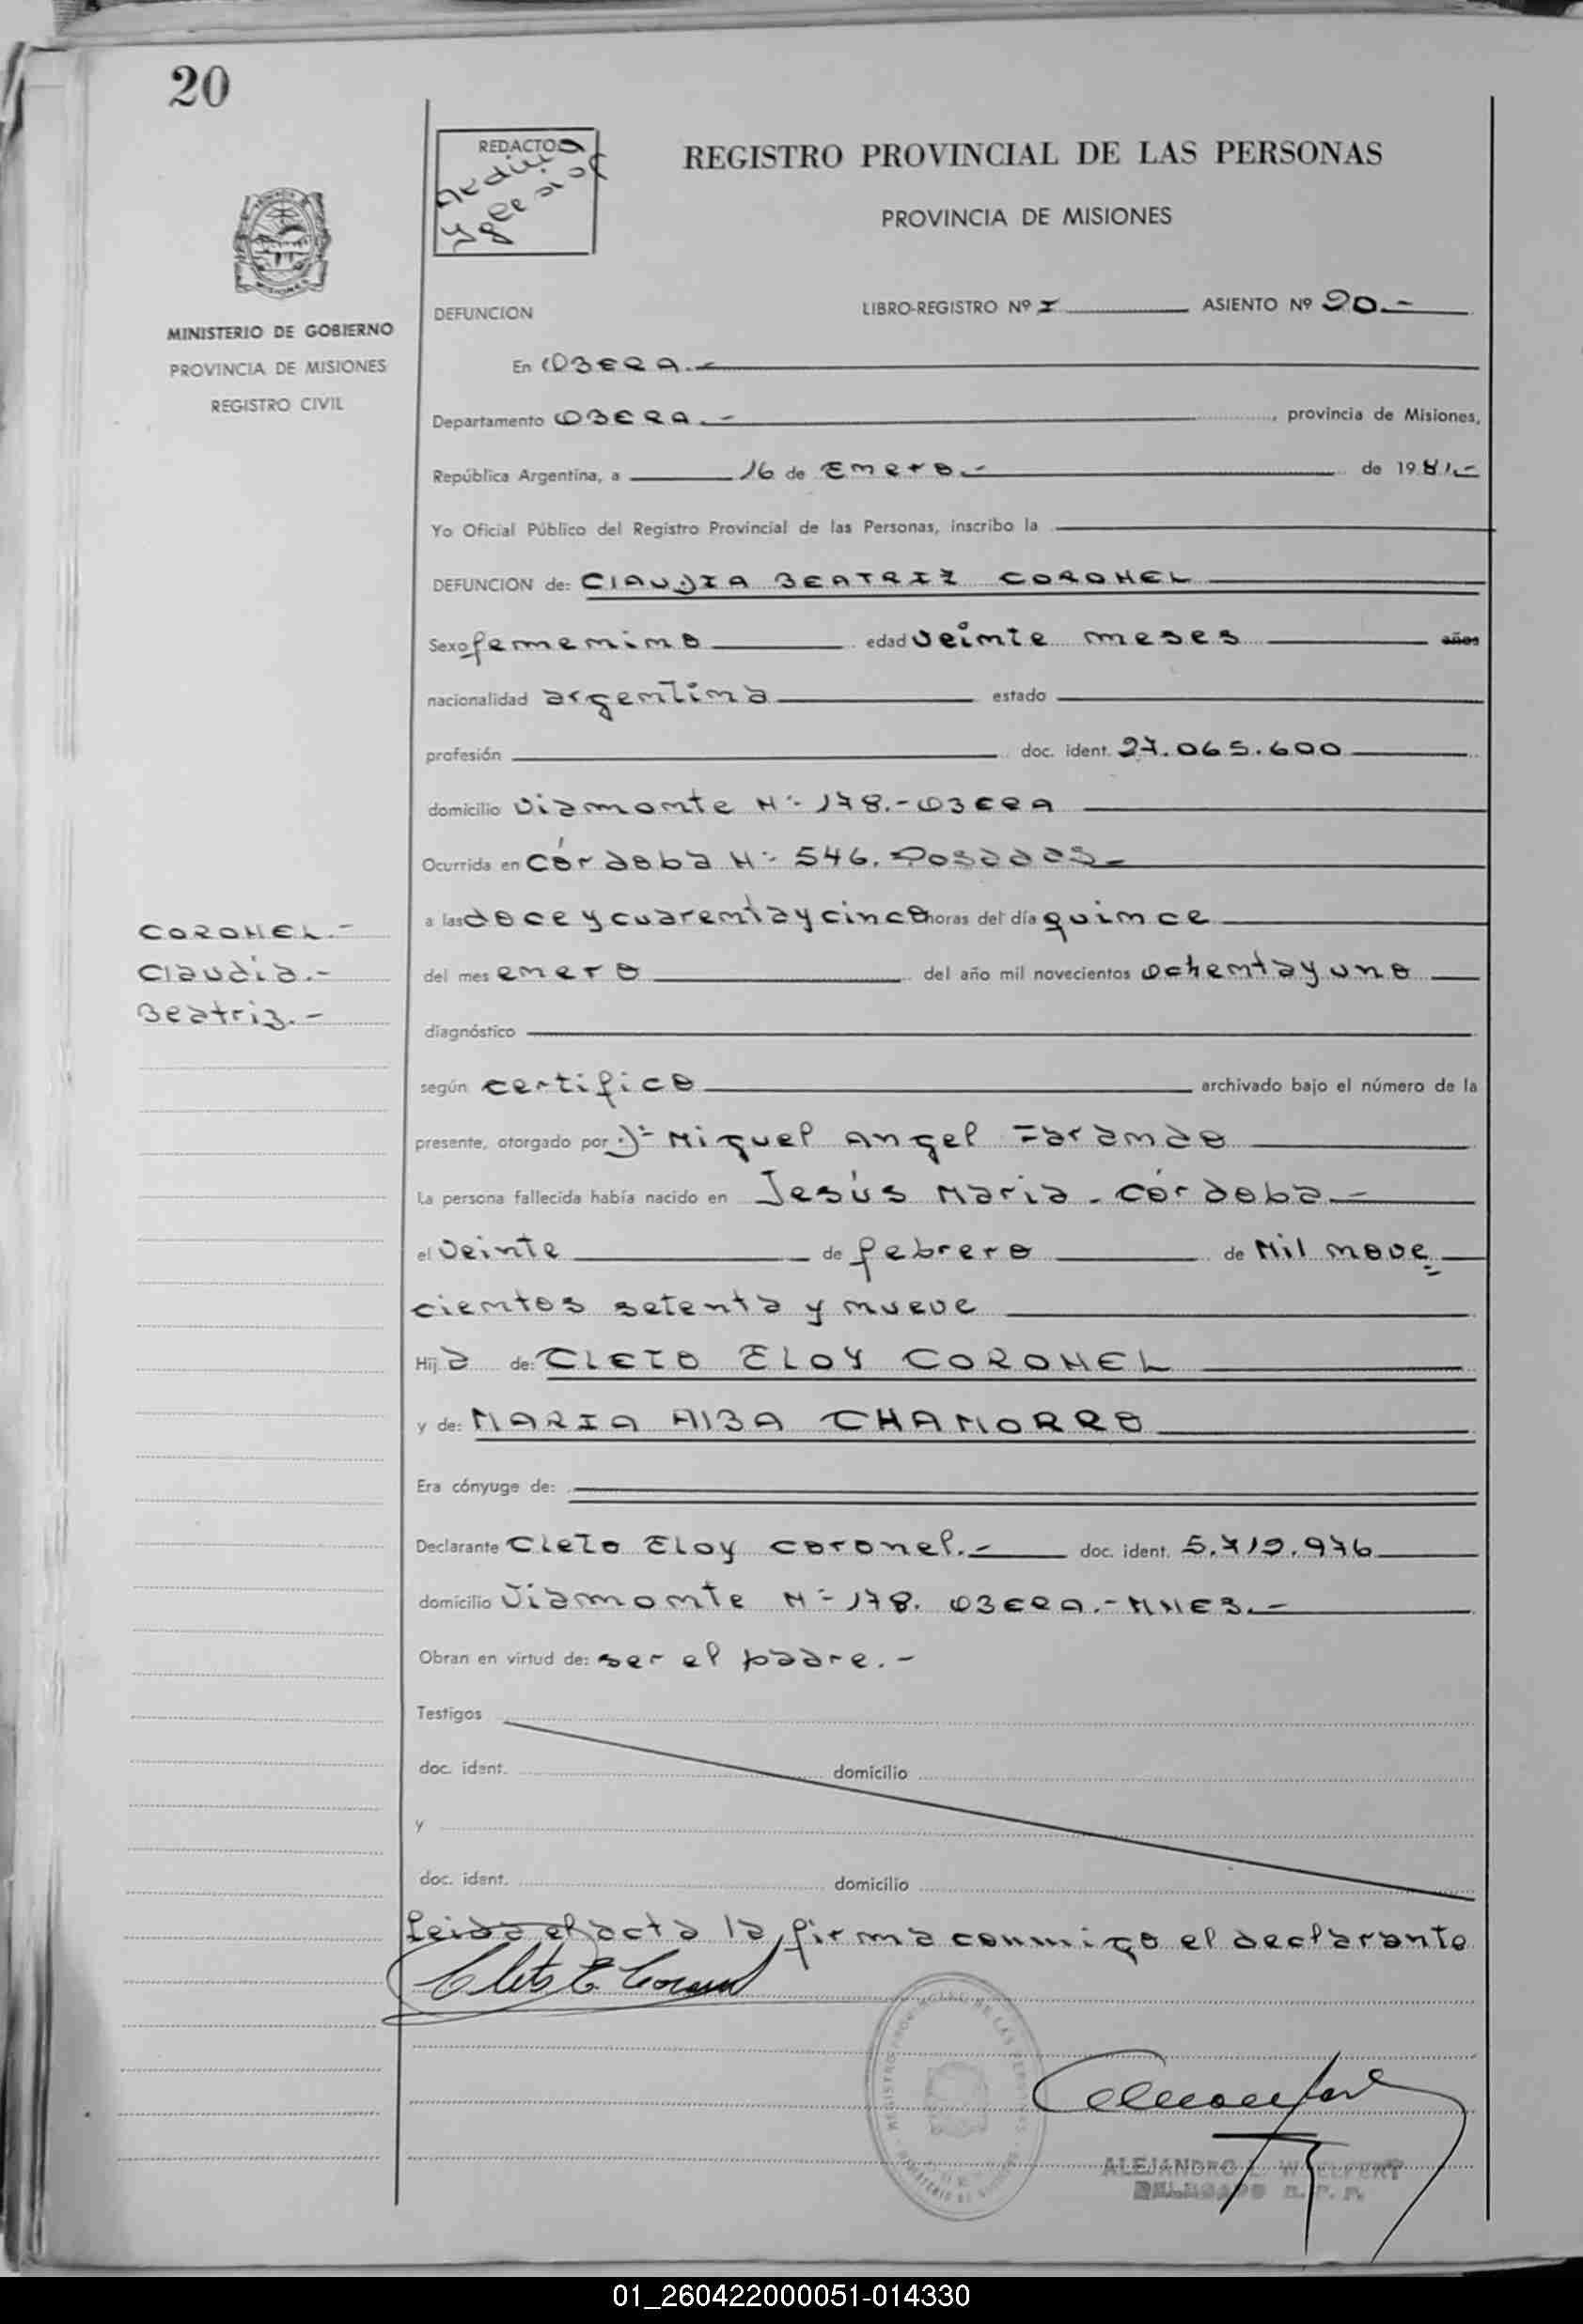 20
REDACTO
REGISTRO PROVINCIAL DE LAS PERSONAS
PROVINCIA DE MISIONES
MINISTERIO DE GOBIERNO
PROVINCIA DE MISIONES
REGISTRO CIVIL
DEFUNCION LIBRO-REGISTRO Nº I ASIENTO Nº 20.-
En OBERA.-
Departamento OBERA.- , provincia de Misiones,
República Argentina, a 16 de Enero.- de 1981.-
Yo Oficial Público del Registro Provincial de las Personas, inscribo la
DEFUNCION de: ClAUDIA BEATRIZ CORONEL
Sexo femenino edad veinte meses años
nacionalidad argentina estado
profesión doc. ident. 27.065.600
domicilio Viamonte Nº 178.- OBERA
Ocurrida en Córdoba Nº 546. Posadas-
a las doce y cuarenta y cinco horas del día quince
del mes enero del año mil novecientos ochenta y uno
CORONEL.-
Claudia.-
Beatriz.-
diagnóstico
según certifico archivado bajo el número de la
presente, otorgado por Dr Miguel Angel
La persona fallecida había nacido en Jesús Maria - Córdoba.-
el veinte de febrero de Mil nove
cientos setenta y nueve
Hij a de: CLETO ELOY CORONEL
y de: MARIA AlBA CHAMORRO
Era cónyuge de:
Declarante Cleto Eloy Coronel.- doc. ident. 5.719.976
domicilio Viamonte Nº 178. OBERA.- MNES.-
Obran en virtud de: ser el padre.-
Testigos
doc. ident. domicilio
y
doc. ident. domicilio
Leida el acta la firma conmigo el declarante
Cleto E. Coronel
ALEJANDRO
DELEGADO R. P. P.
01_260422000051-014330